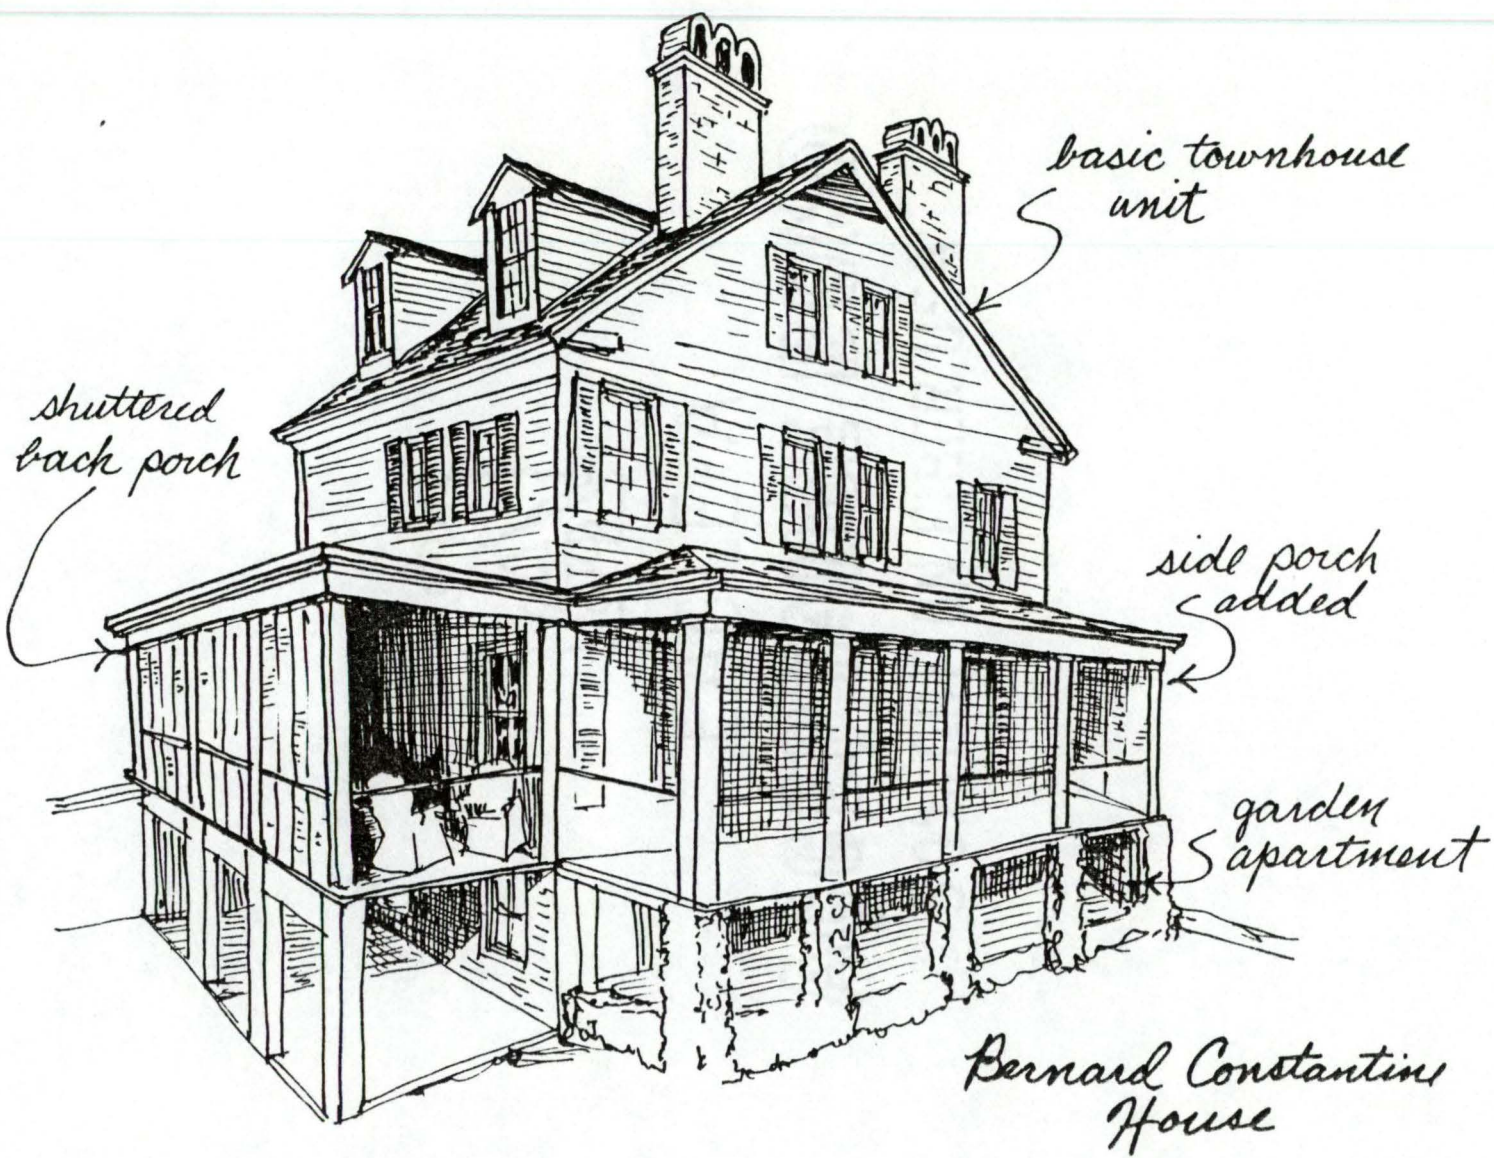 basic townhouse
unit
shuttered
back porch
side porch
added
garden
apartment
Bernard Constantine
House